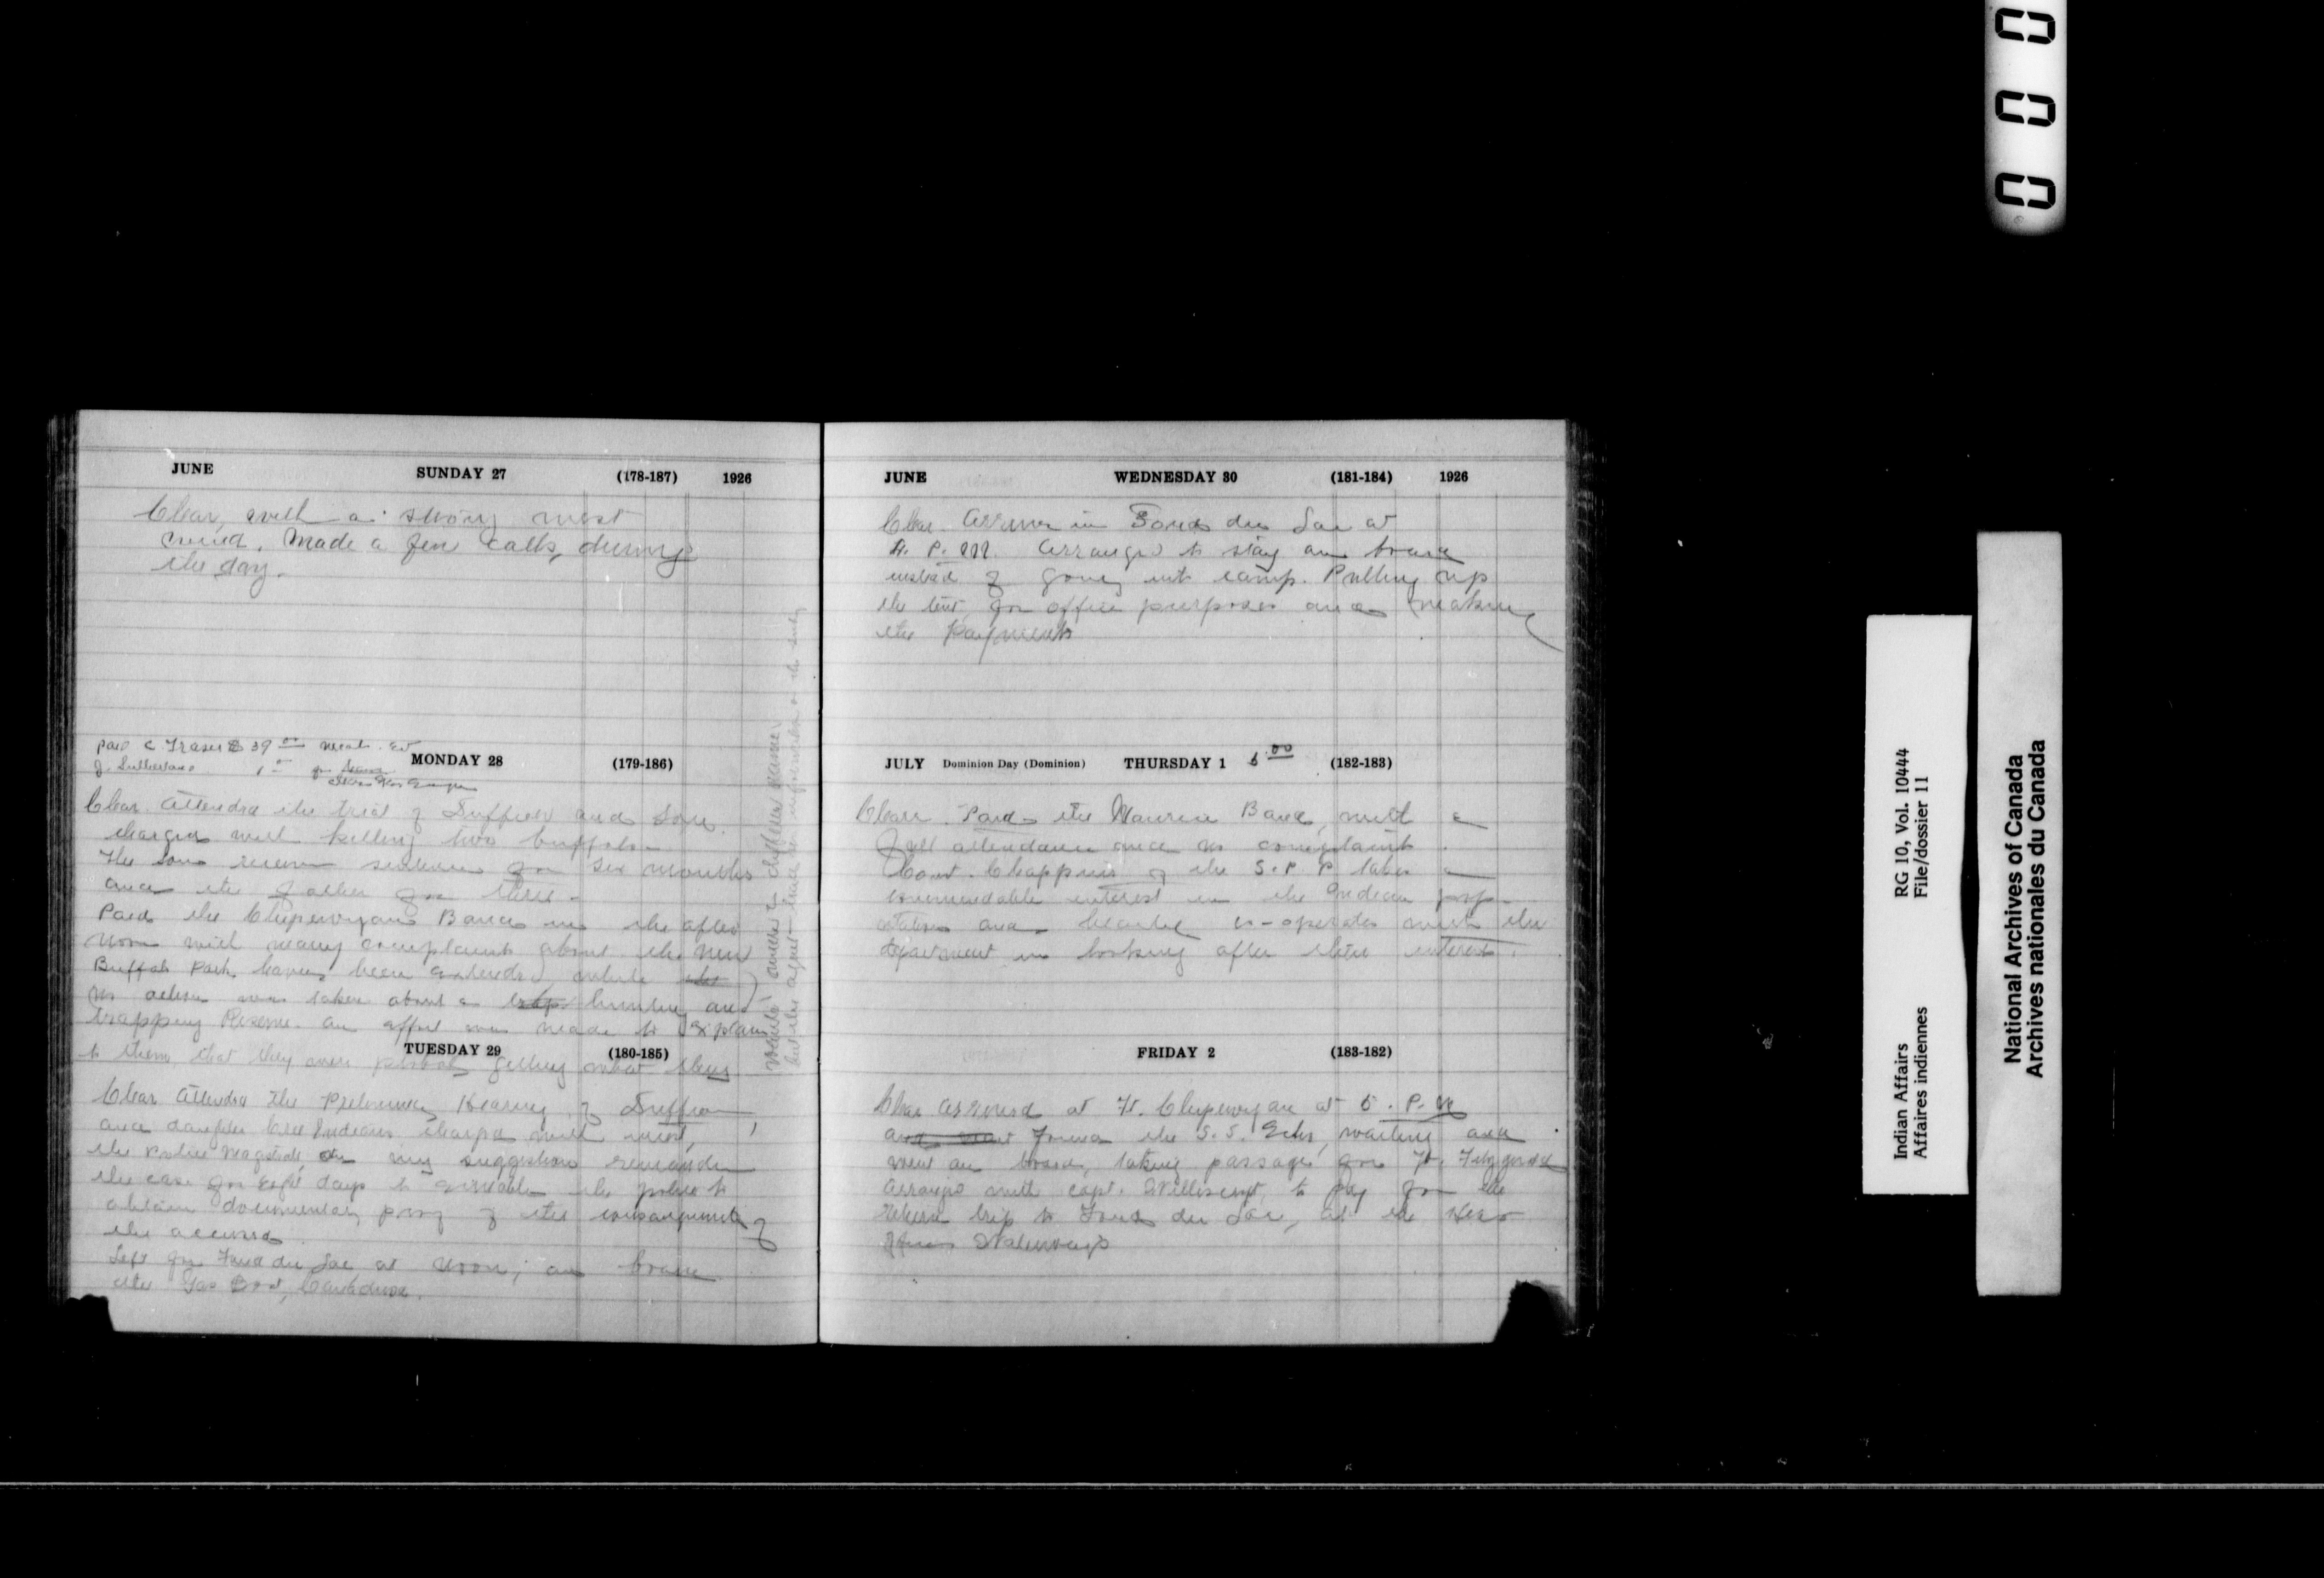 JUNE SUNDAY 27 (178-187) 1926
Clear, with a strong west
wind. Made a few calls, during
the day.
paid C Fraser $ 39 00
J. Sutherland 1 00 for
MONDAY 28 (179-186)
Clear. Attended the trial of Suffren and Son.
charged with killing two buffalo-
The son receives sentence for six months
and the father for three-
Paid the Chipewyan Band in the after
noon with many complaints about the new
Buffalo Park having been entered, while the
no action was taken about a trap hunting and
trapping Reserve. an effort was made to explain
to them, that they were probably getting what they
wanted under a different name,
but the agent had no information on the subj
TUESDAY 29 (180-185)
Clear Attended the Preliminary Hearing of Suffren
and daughter Cree Indians charged with incest,
the Police Magistrate on my suggestion remanded
the case for eight days to enable the police to
obtain documentary proof of the consanguinity of
the accused.
Left for Fond du Lac at noon, on board
the Gas Boat,
JUNE WEDNESDAY 30 (181-184) 1926
Clear. Arrived in Fond du Lac at
P. M. Arranged to stay on board
instead of going into camp. Putting up
the tent, for office purposes and making
the Payments
JULY Dominion Day (Dominion) THURSDAY 1 (182-183)
Clear. Paid the Maurice Band, with a
full attendance and no complaints.
Const. Chappuis of the S. P. P. takes a
commendable interest in the Indian pop-
ulation and heartily co-operates with the
department in looking after their interests.
FRIDAY 2 (183-182)
Clear arrived at Ft. Chipewyan at 5. P. M
and went found the S. S. Echo, waiting and
went on board, taking passage for Ft. Fitzgerald
Arranged with Capt. to pay for the
return trip to Fond du Lac, at the
Waterways
0 0 0
Indian Affairs RG 10, Vol. 10444
Affaires indiennes File/dossier 11
National Archives of Canada
Archives nationales du Canada